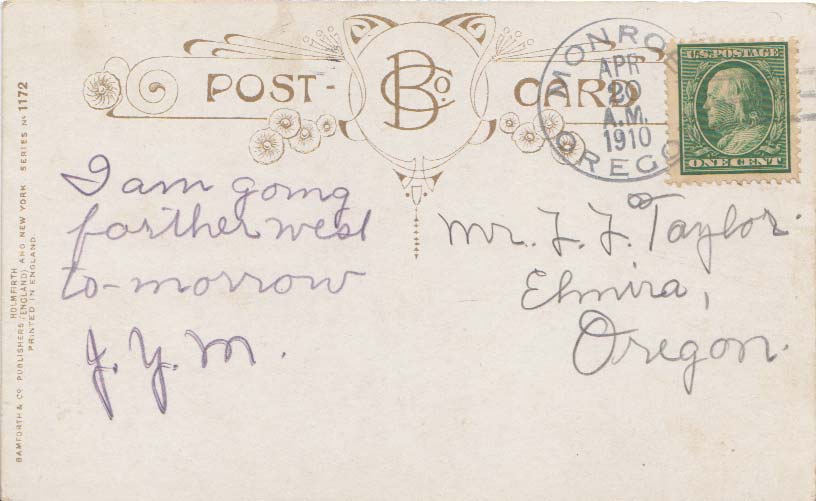 POST-
BCo.
CARD
MONROE
APR
20
A.M.
1910
OREGO
U.S. POSTAGE
ONE CENT
I am going
farther west
to-morrow
J. Y. M.
Mr. F. F. Taylor.
Elmira,
Oregon.
BAMFORTH & Co PUBLISHERS HOLMFIRTH (ENGLAND) AND NEW YORK SERIES No 1172
PRINTED IN ENGLAND